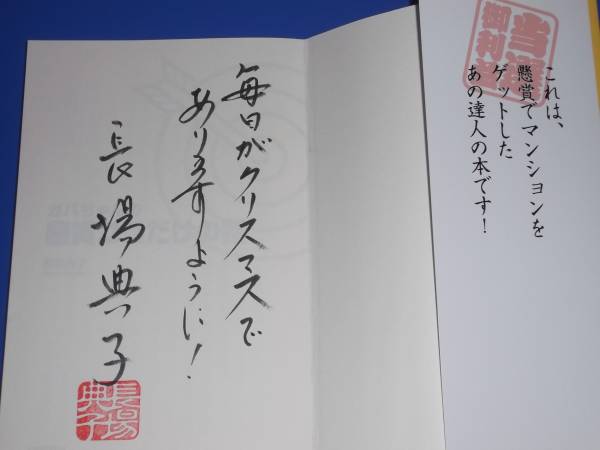 当選
御利
これは、
懸賞でマンションを
ゲットした
あの達人の本です!
毎日がクリスマスで
ありますように!
長場典子
長場
典子